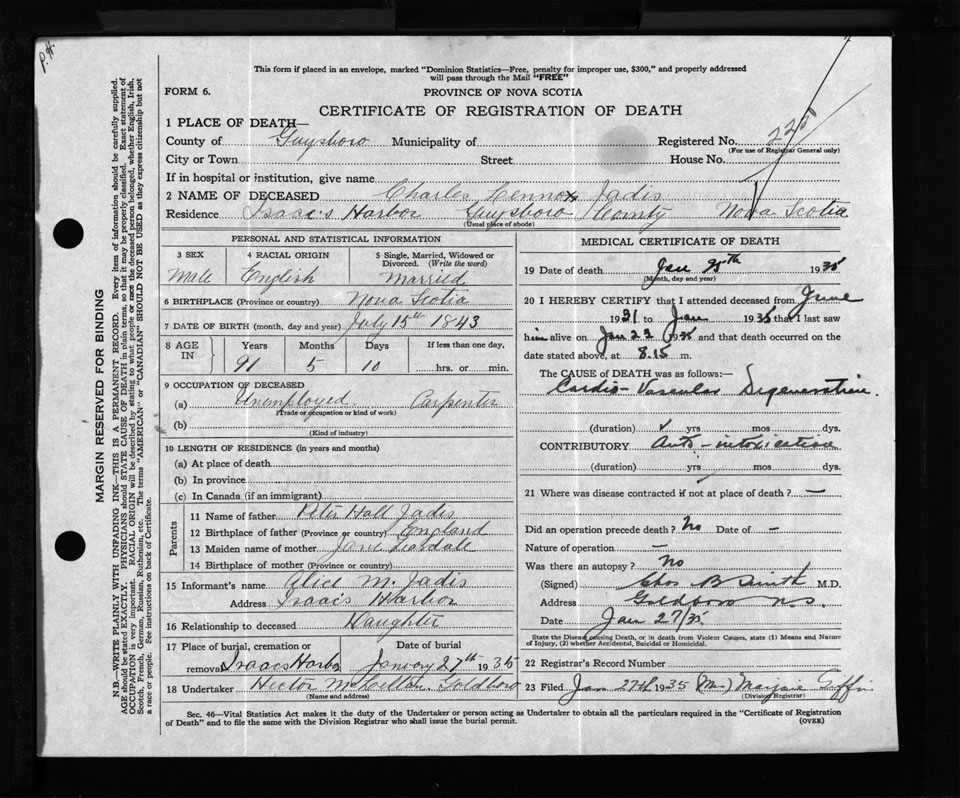 P.H.
This form if placed in an envelope, marked "Dominion Statistics—Free, penalty for improper use, $300," and properly addressed
will pass through the Mail "FREE"
FORM 6.
PROVINCE OF NOVA SCOTIA
CERTIFICATE OF REGISTRATION OF DEATH
1 PLACE OF DEATH—
County of Guysboro Municipality of Registered No.
(For use of Registrar General only)
City or Town Street House No.
If in hospital or institution, give name
2 NAME OF DECEASED Charles Lennox Jadis
Residence Isaac's Harbor Guysboro County Nova Scotia
(Usual place of abode)
PERSONAL AND STATISTICAL INFORMATION
3 SEX 4 RACIAL ORIGIN 5 Single, Married, Widowed or
Divorced. (Write the word)
Male English Married
6 BIRTHPLACE (Province or country) Nova Scotia
7 DATE OF BIRTH (month, day and year) July 15th 1843
8 AGE IN Years Months Days If less than one day,
91 5 10 hrs. or min.
9 OCCUPATION OF DECEASED
(a) Unemployed Carpenter
(Trade or occupation or kind of work)
(b)
(Kind of industry)
10 LENGTH OF RESIDENCE (in years and months)
(a) At place of death
(b) In province
(c) In Canada (if an immigrant)
Parents
11 Name of father Peter Hall Jadis
12 Birthplace of father (Province or country) England
13 Maiden name of mother Jane
14 Birthplace of mother (Province or country)
15 Informant's name Alice M. Jadis
Address Isaacs Harbor
16 Relationship to deceased Daughter
17 Place of burial, cremation or Date of burial
removal Isaacs Harbor January 27th 1935
18 Undertaker Hector Goldboro
(Name and address)
MEDICAL CERTIFICATE OF DEATH
19 Date of death Jan 25th 1935
(Month, day and year)
20 I HEREBY CERTIFY that I attended deceased from June
1931 to Jan 1935 that I last saw
him alive on Jan 22 1935 and that death occurred on the
date stated above, at 8.15 m.
The CAUSE of DEATH was as follows:—
Cardio-Vascular Degeneration.
(duration) yrs mos dys.
CONTRIBUTORY Auto-intoxication
(duration) yrs mos dys.
21 Where was disease contracted if not at place of death? —
Did an operation precede death? No Date of —
Nature of operation —
Was there an autopsy? No
(Signed) Chas B Smith M.D.
Address Goldboro N.S.
Date Jan 27/35
State the Disease causing Death, or in death from Violent Causes, state (1) Means and Nature
of Injury, (2) whether Accidental, Suicidal or Homicidal.
22 Registrar's Record Number
23 Filed Jan 27th 1935 (Mrs) Marjorie Giffin
(Division Registrar)
Sec. 46—Vital Statistics Act makes it the duty of the Undertaker or person acting as Undertaker to obtain all the particulars required in the "Certificate of Registration
of Death" and to file the same with the Division Registrar who shall issue the burial permit. (OVER)
MARGIN RESERVED FOR BINDING
N.B.—WRITE PLAINLY WITH UNFADING INK—THIS IS A PERMANENT RECORD. Every item of information should be carefully supplied.
AGE should be stated EXACTLY. PHYSICIANS should STATE CAUSE OF DEATH in plain terms, so that it may be properly classified. Exact statement of
OCCUPATION is very important. RACIAL ORIGIN will be described by stating to what people or race the deceased person belonged, whether English, Irish,
Scotch, French, German, Russian, Ruthenian, etc. The terms "AMERICAN" or "CANADIAN" SHOULD NOT BE USED as they express citizenship but not
a race or people. See instructions on back of Certificate.